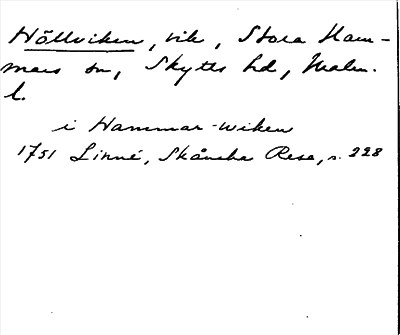 Höllviken, vik, Stora Ham-
mars sn, Skytts hd, Malm.
l.
i Hammar-wiken
1751 Linné, Skånska Resa, s. 228